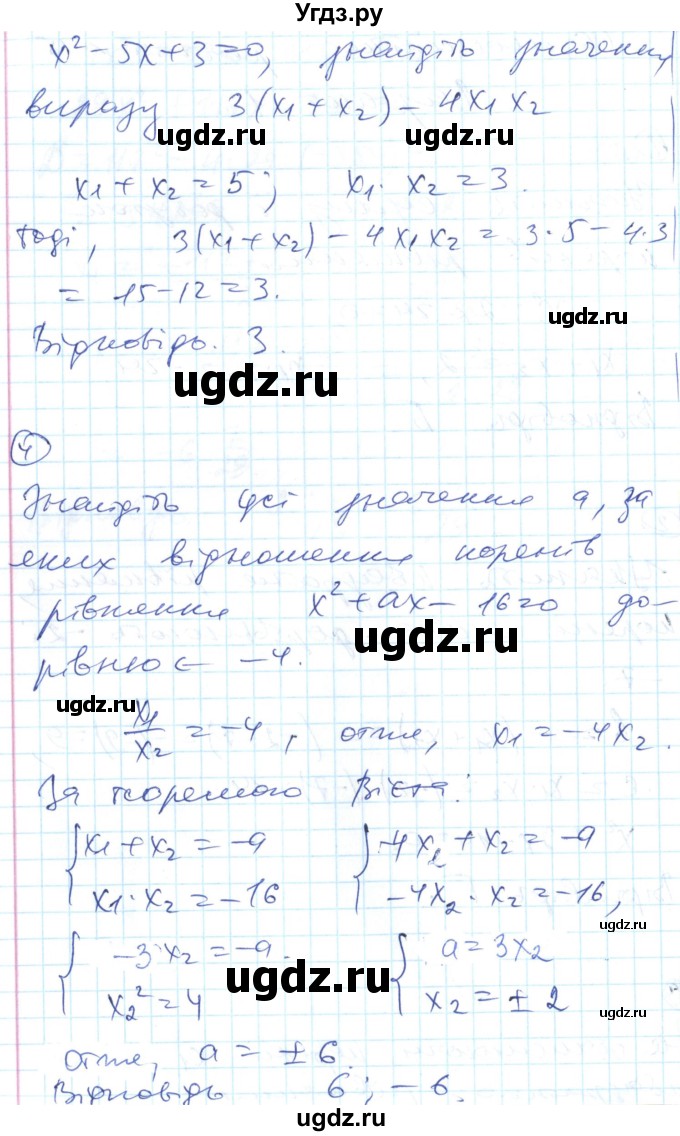 Угдз.ру
x² - 5x + 3 = 0, знайдіть значення
виразу 3(x₁ + x₂) - 4x₁x₂
ugdz.ru
ugdz.ru
x₁ + x₂ = 5; x₁ · x₂ = 3.
тоді, 3(x₁ + x₂) - 4x₁x₂ = 3·5 - 4·3
= 15 - 12 = 3.
ugdz.ru
Відповідь. 3.
ugdz.ru
4
Знайдіть усі значення a, за
яких відношення коренів
рівняння x² + ax - 16 = 0 до-
рівнює -4.
ugdz.ru
x₁/x₂ = -4, отже, x₁ = -4x₂.
За теоремою Вієта:
{ x₁ + x₂ = -a { -4x₂ + x₂ = -a
x₁ · x₂ = -16 -4x₂ · x₂ = -16,
ugdz.ru
{ -3x₂ = -a. { a = 3x₂
x₂² = 4 x₂ = ± 2
ugdz.ru
ugdz.ru
Отже, a = ± 6.
Відповідь 6; -6.
ugdz.ru